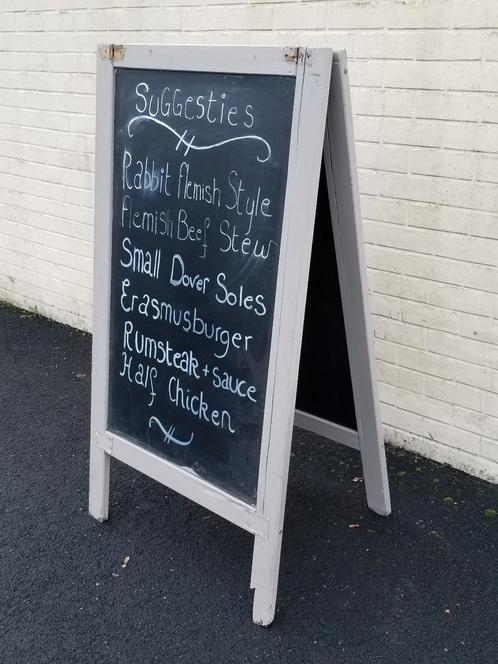 SuGGesties
Rabbit Flemish Style
Flemish Beef Stew
Small Dover Soles
Erasmusburger
Rumsteak + sauce
Half Chicken